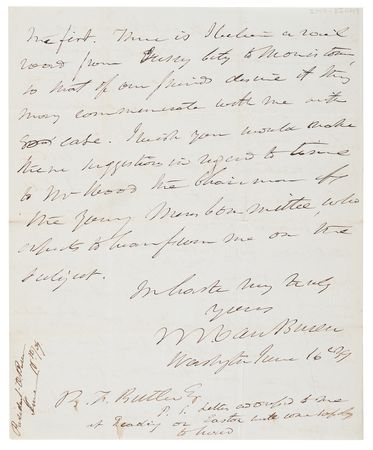 the first. There is I believe a rail
road from Jersey City to Morristown,
so that if our friends desire it they
may communicate with me with
ease. I wish you would make
these suggestions in regard to time
to Mr Wood the Chairman of
the Young Mens Committee, who
expects to hear from me on the
subject.
In haste very truly
yours
M Van Buren
Washington June 16th 39
B. F. Butler Esq
P. S. Letters addressed to me
at Reading or Easton will come safely
to hand
President V. Buren
June 18th 39